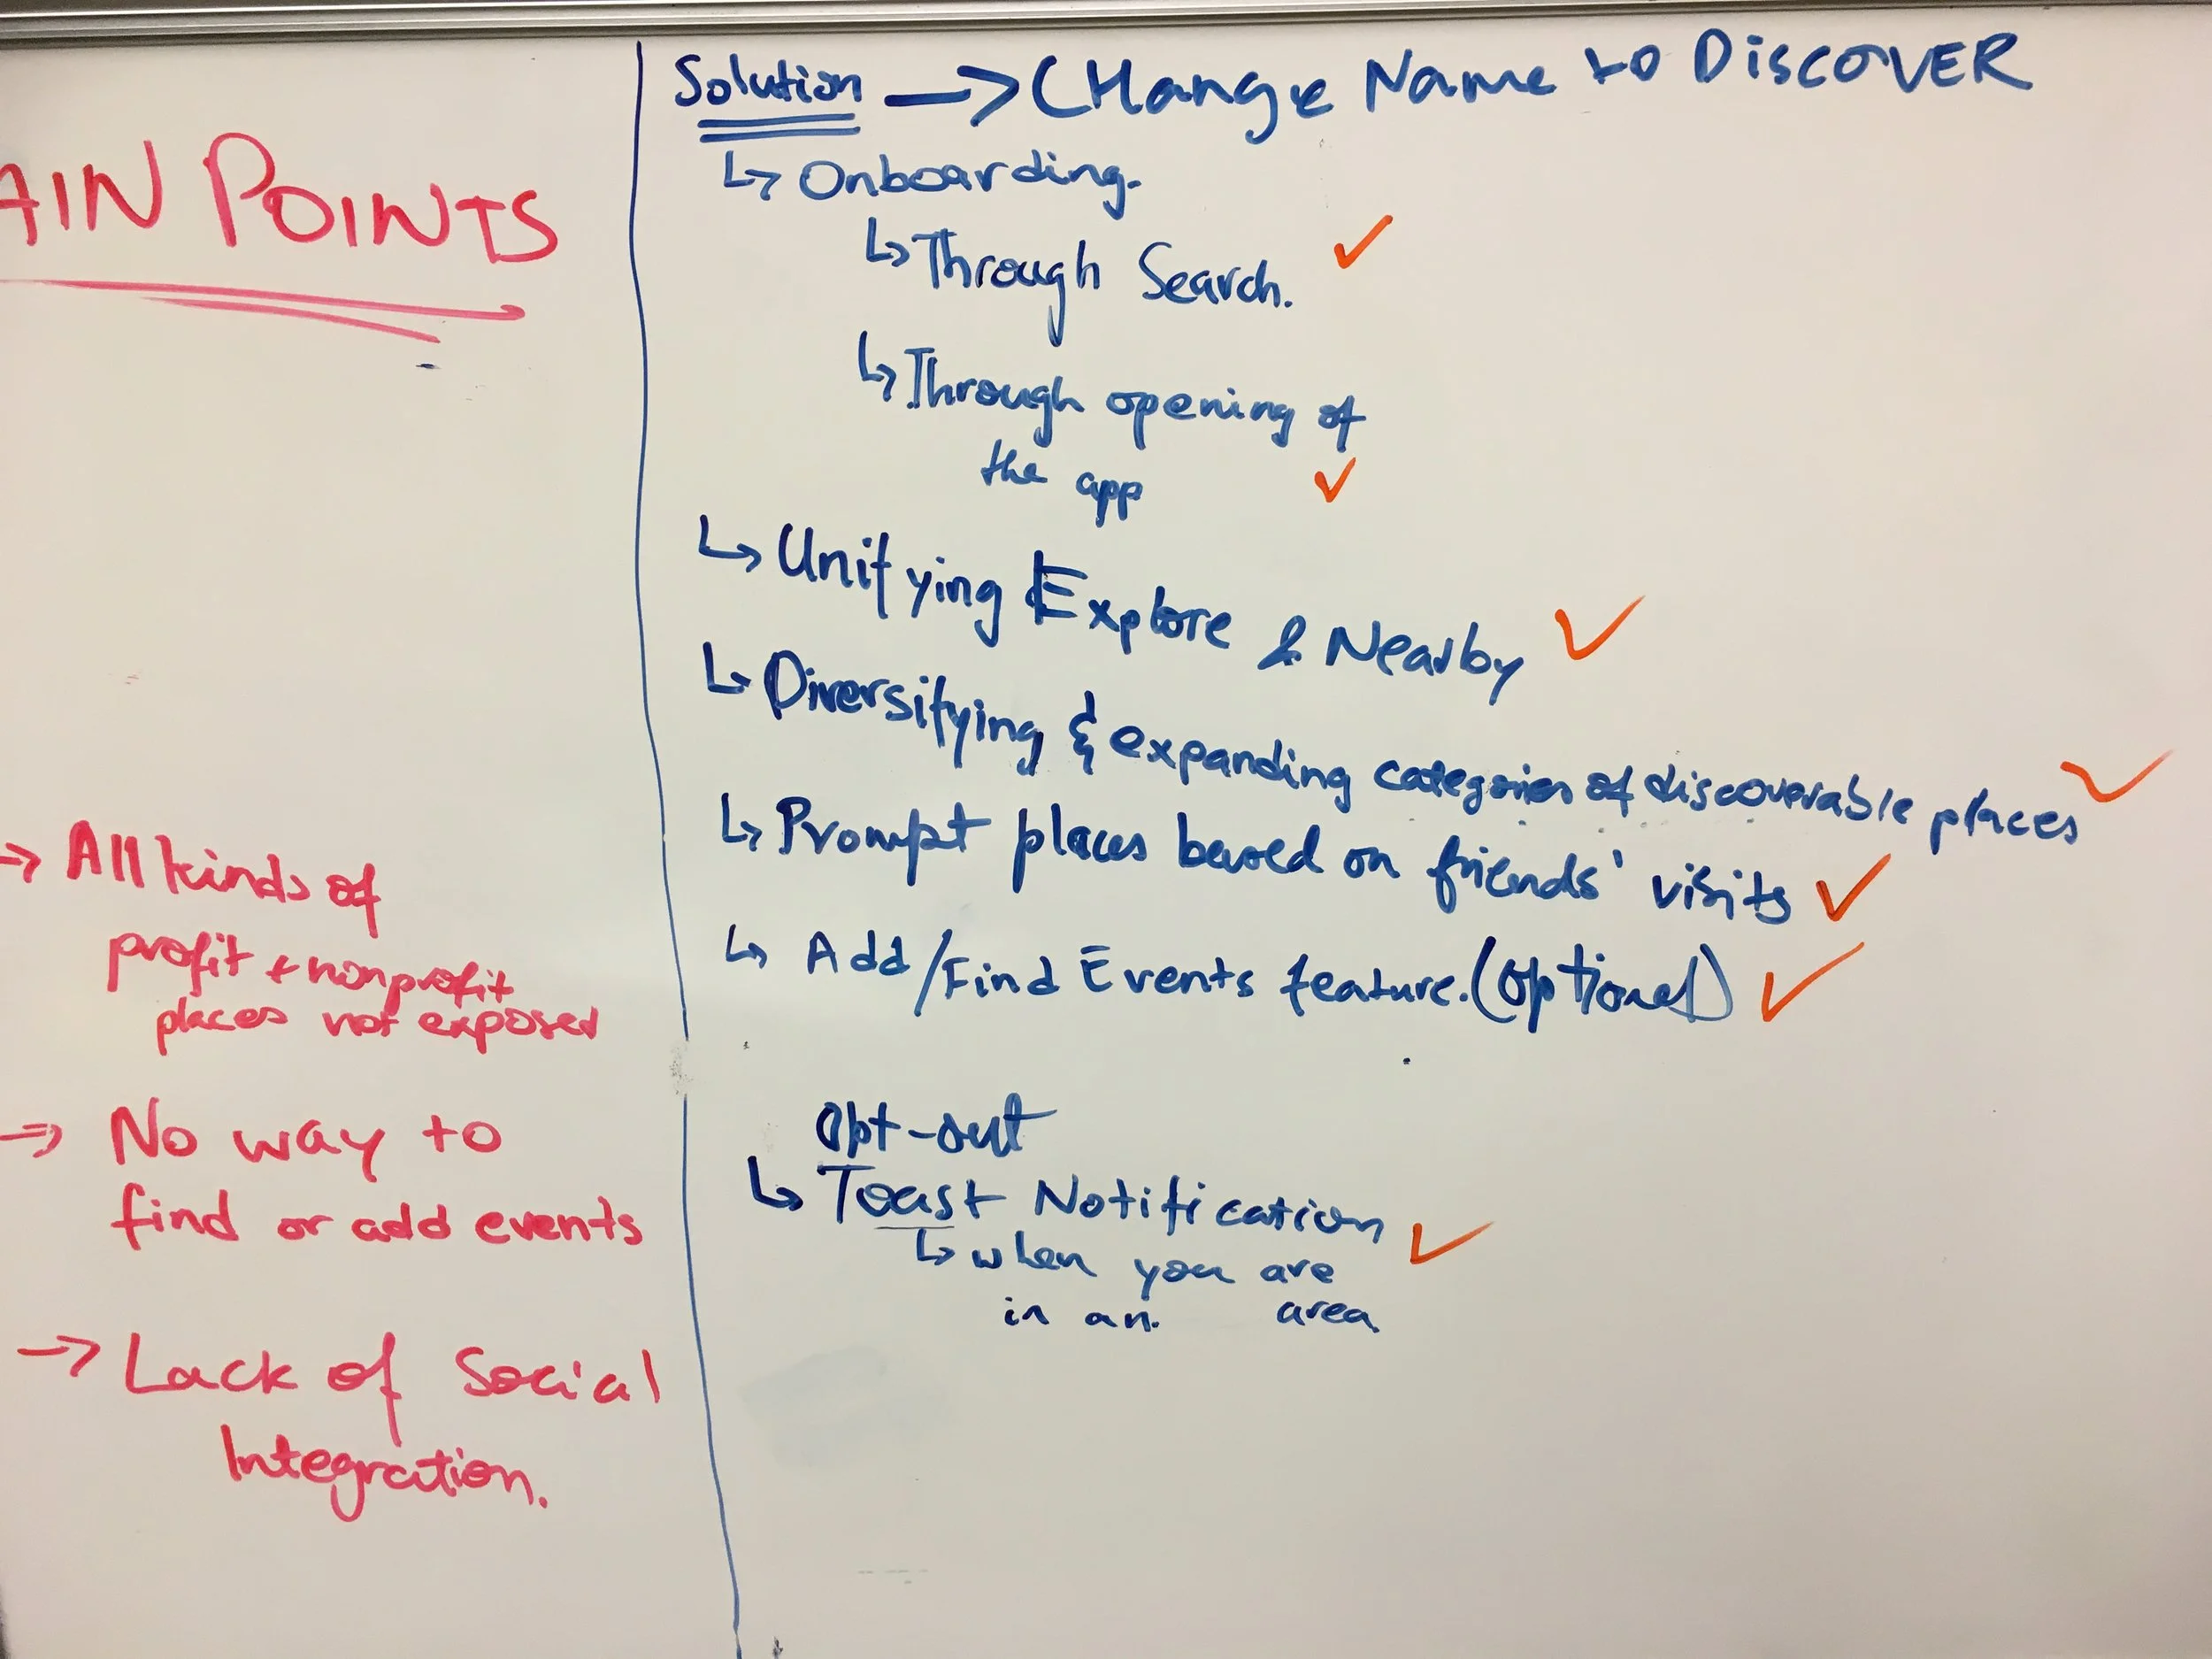 AIN POINTS
→ All kinds of
profit + nonprofit
places not exposed
→ No way to
find or add events
→ Lack of Social
Integration.
Solution → CHange Name to DISCOVER
↳ Onboarding.
↳ Through Search. ✓
↳ Through opening of
the app ✓
↳ Unifying Explore & Nearby ✓
↳ Diversifying & expanding categories of discoverable places ✓
↳ Prompt places based on friends' visits ✓
↳ Add/Find Events feature. (optional) ✓
Opt-out
↳ Toast Notification ✓
↳ when you are
in an. area.